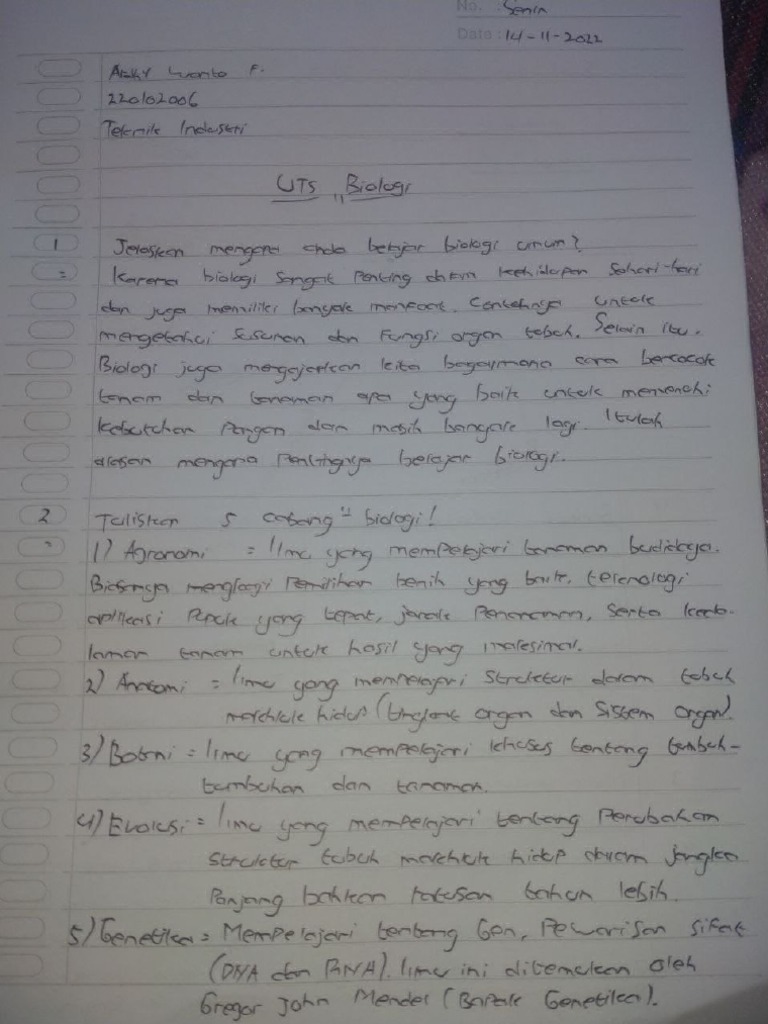 No. : Senin
Date : 14-11-2022
F.
220102006
Teknik Industri
UTS Biologi
1 Jelaskan mengapa anda belajar biologi umum?
= Karena biologi sangat penting dalam kehidupan sehari-hari
dan juga memiliki banyak manfaat. Contohnya untuk
mengetahui susunan dan fungsi organ tubuh. Selain itu.
Biologi juga mengajarkan kita bagaimana cara bercocok
tanam dan tanaman apa yang baik untuk memenuhi
kebutuhan pangan dan masih banyak lagi. Itulah
alasan mengapa pentingnya belajar biologi.
2 Tuliskan 5 cabang" biologi!
1) Agronomi = Ilmu yang mempelajari tanaman budidaya.
Biasanya pemilihan benih yang baik, teknologi
aplikasi pupuk yang tepat, jarak penanaman, serta keda-
laman tanam untuk hasil yang maksimal.
2) Anatomi = Ilmu yang mempelajari struktur dalam tubuh
makhluk hidup (tingkat organ dan sistem organ).
3) Botani = Ilmu yang mempelajari khusus tentang tumbuh-
tumbuhan dan tanaman.
4) Evolusi = Ilmu yang mempelajari tentang Perubahan
struktur tubuh makhluk hidup dalam jangka
Panjang bahkan ratusan tahun lebih.
5) Genetika = Mempelajari tentang Gen, Pewarisan sifat
(DNA dan RNA). Ilmu ini ditemukan oleh
Gregor John Mendel (Bapak Genetika).